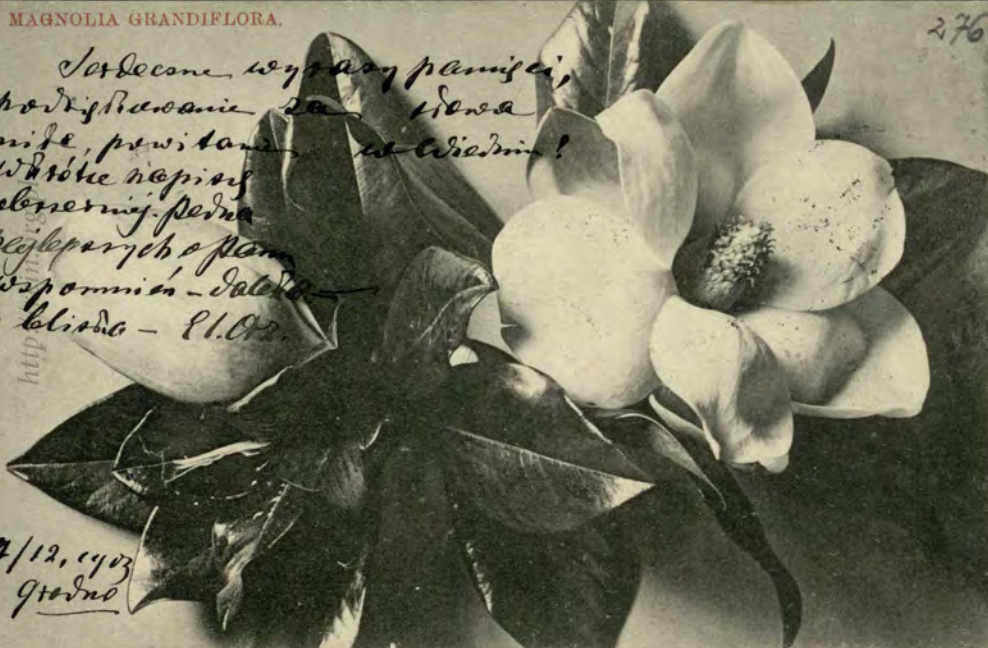 MAGNOLIA GRANDIFLORA.
276
Serdeczne wyrazy pamięci,
podziękowanie za słowa
miłe, powitanie w Wiedniu!
Wkrótce napiszę
obszerniej. Pełna
najlepszych o Panu
wspomnień – daleka –
bliska –
7/12, 1903
Grodno
http